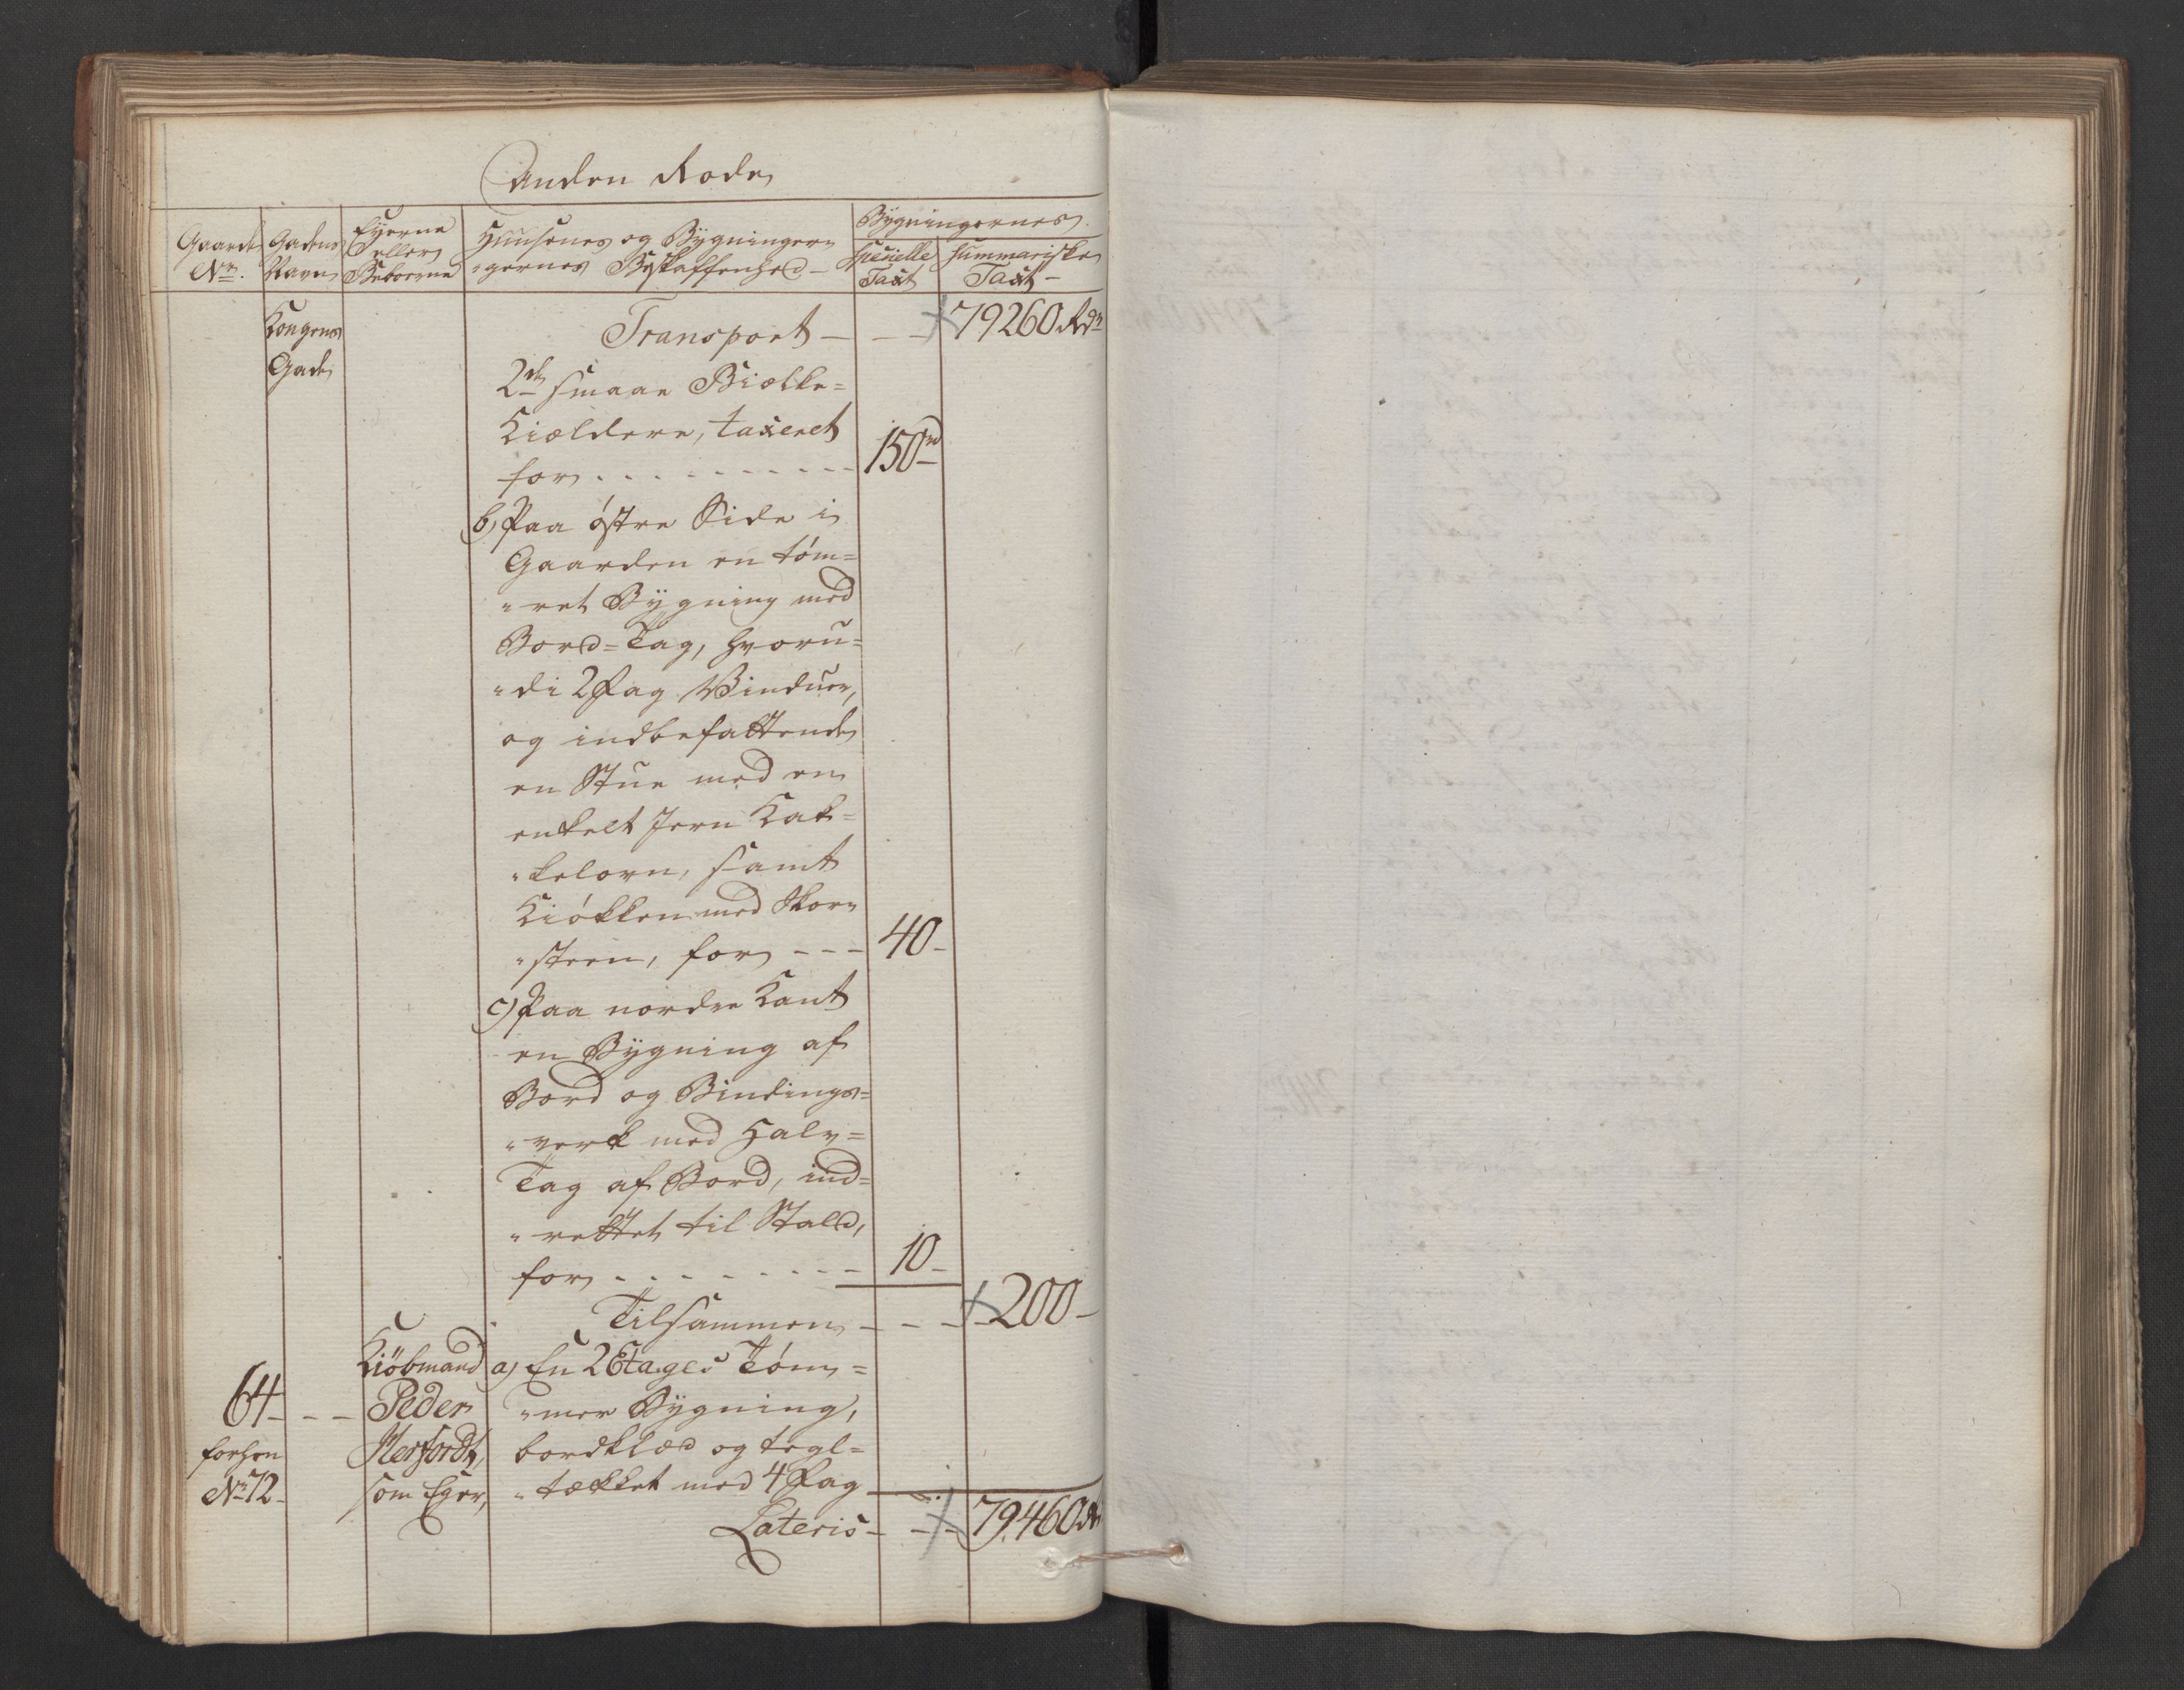 Anden Rode
Gaarde No.
Gadens Navn
Eyerne eller Beboerne
Huusenes og Bygnin-
gernes Beskaffenhed
Bygningernes
Specielle Taxt
Summariske Taxt
Kongens
Gade
Transport — — — 79260 Rdr
2de smaae Biælke-
Kieldere, taxeret
for - - - - 150rd
b) Paa østre Side i
Gaarden en töm-
ret Bygning med
Bord-Tag, hvoru-
di 2 Fag Vinduer,
og indbefattende
en Stue med en
enkelt Jern Kak-
kelovn, samt
Kiökken med Skor-
steen, for - - - 40-
c) Paa nordre Kant
en Bygning af
Bord og Bindings-
verk med Halv-
Tag af Bord, ind-
rettet til Stald,
for - - - - 10-
Tilsammen - - - 200-
64 - - -
forhen
No 72
Kiöbmand
Peder
Herfordt,
som Eyer,
a) En 2 Etages Töm-
mer Bygning,
bordklæd og tegl-
tækket med 4 Fag
Lateris - - - 79460 Rdr